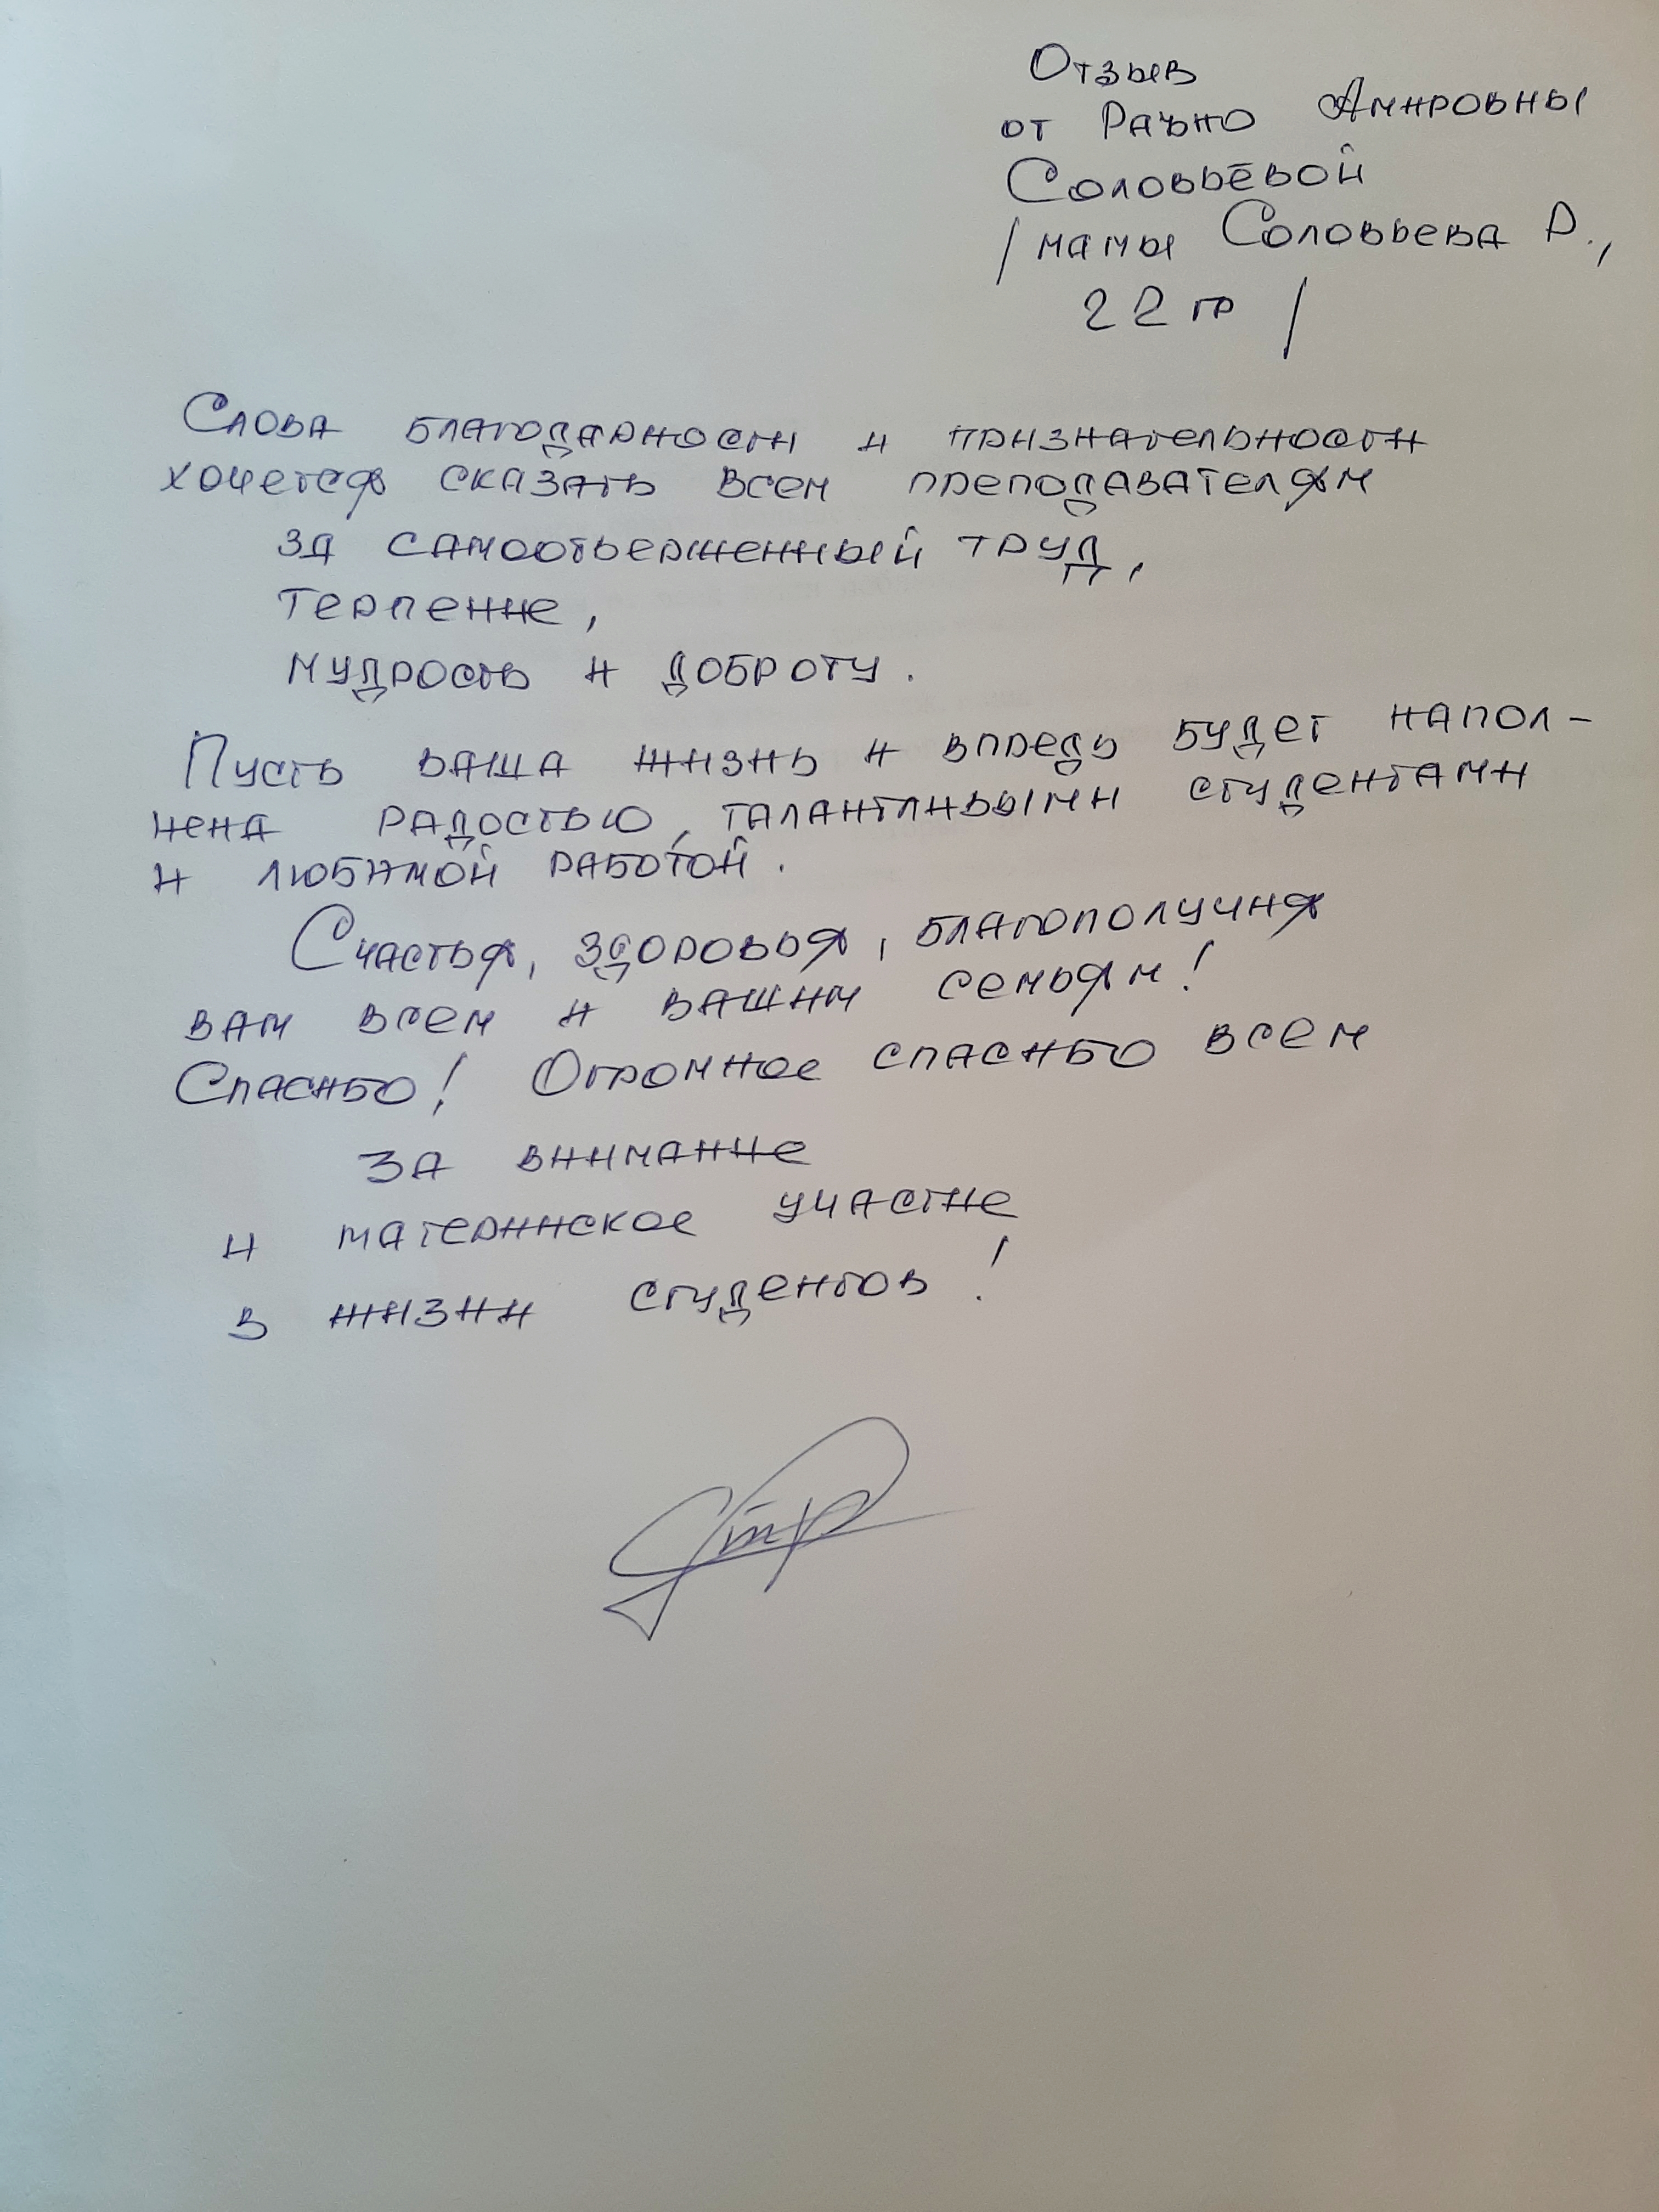 Отзыв
от Раъно Амировны
Соловьёвой
/мамы Соловьева Р.,
22 гр/
Слова благодарности и признательности
хочется сказать всем преподавателям
за самоотверженный труд,
терпение,
мудрость и доброту.
Пусть ваша жизнь и впредь будет напол-
нена радостью, талантливыми студентами
и любимой работой.
Счастья, здоровья, благополучия
вам всем и вашим семьям!
Спасибо! Огромное спасибо всем
за внимание
и материнское участие
в жизни студентов!